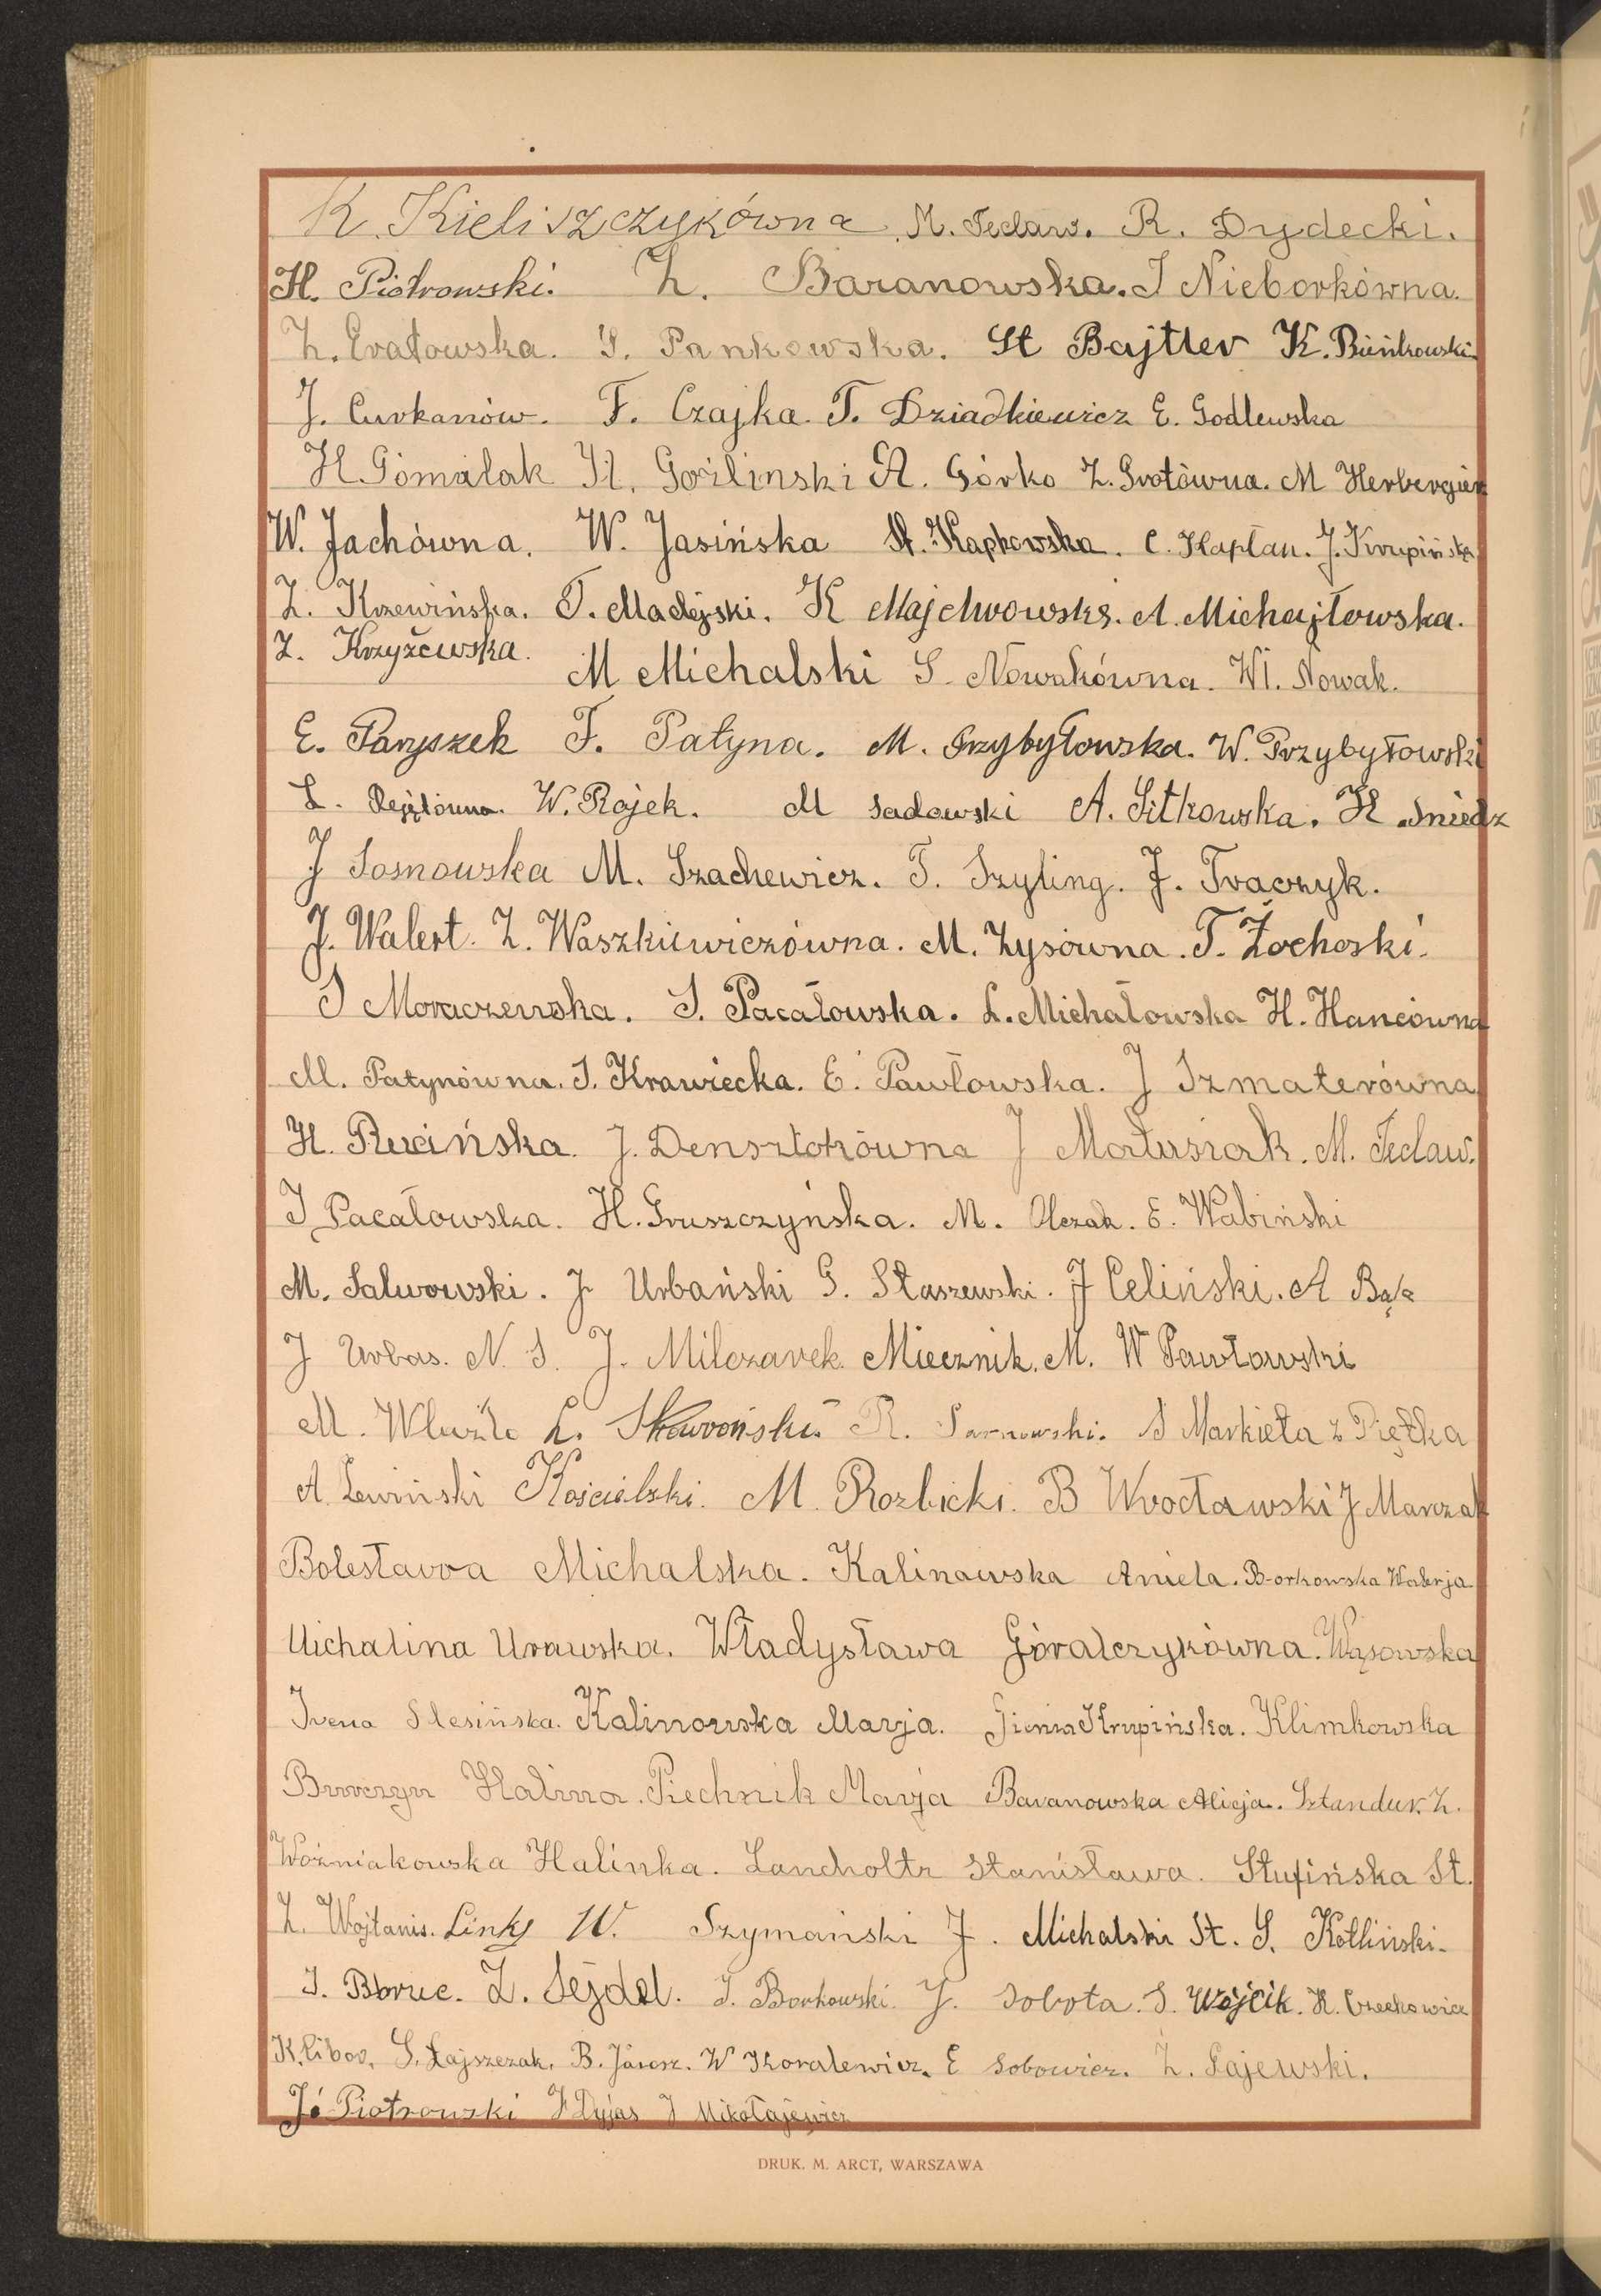 K. Kieliszczykówna. M. Teclaw. R. Dydecki.
H. Piotrowski. Z. Baranowska. J Nieborkówna.
Z. Eratowska. S. Pankowska. St Bajtler K. Bieńkowski.
J. Curkanów. F. Czajka. T. Dziadkiewicz E. Godlewska
H. Gomalak H. Goślinski A. Górko Z. Grotówna. M Herbergier
W. Jachówna. W. Jasińska St. Kapkowska. C. Kapłan. J. Krupińska
Z. Krzewińska. T. Madejski. K Majchrowski. A. Michajłowska.
Z. Krzyżewska. M Michalski S. Nowakówna. Wł. Nowak.
E. Paryszek F. Patyna. M. Przybyłowska. W. Przybyłowski
L. W. Rojek. M Sadowski A. Sitkowska. K. Śniedz
J Sosnowska M. Szachewicz. T. Szyling. J. Traczyk.
J. Walert. Z. Waszkiewiczówna. M. Zysówna. T. Żochoski.
S Moraczewska. S. Pacałowska. L. Michałowska H. Hancówna
M. Patynówna. S. Krawiecka. E. Pawłowska. J Szmaterówna
H. Rucińska. J. Densztokówna J Matusiak. M. Teclaw.
J Pacałowska. H. Gruszczyńska. M. Olczak. E. Wabiński
M. Salwowski. J. Urbański G. Staszewski. J Celiński. A Bąk
J Urbas. N. S. J. Milczarek. Miecznik. M. W Pawłowski
M. Wlaźlo L. Skwroński R. Sarnowski. S Markieta Z Piętka
A. Lewinski Kościelski. M. Rozbicki. B Wrocławski J Marczak
Bolesława Michalska. Kalinawska Aniela. Borkowska Walerja
Michalina Urawska. Władysława Góralczykówna. Wąsowska
Irena Slesińska. Kalinowska Marja. Gienia Krupińska. Klimkowska
Burczyn Halina. Piechnik Marja Baranowska Alicja. Sztandur. Z.
Woźniakowska Halinka. Lancholtz Stanisława. Stupińska St.
Z. Wojtanis. Linky W. Szymański J. Michalski St. S. Kotliński.
J. Boruc. Z. Sejdel. S. Borkowski. J. Sobota. S. Wójcik. K. Czechowicz
K. Libor. S. Łajszczak. B. Jarosz. W Koralewicz. E Sobowicz. Z. Gajewski.
Jó Piotrowski J Dyjas J Mikołajewicz
DRUK. M. ARCT, WARSZAWA